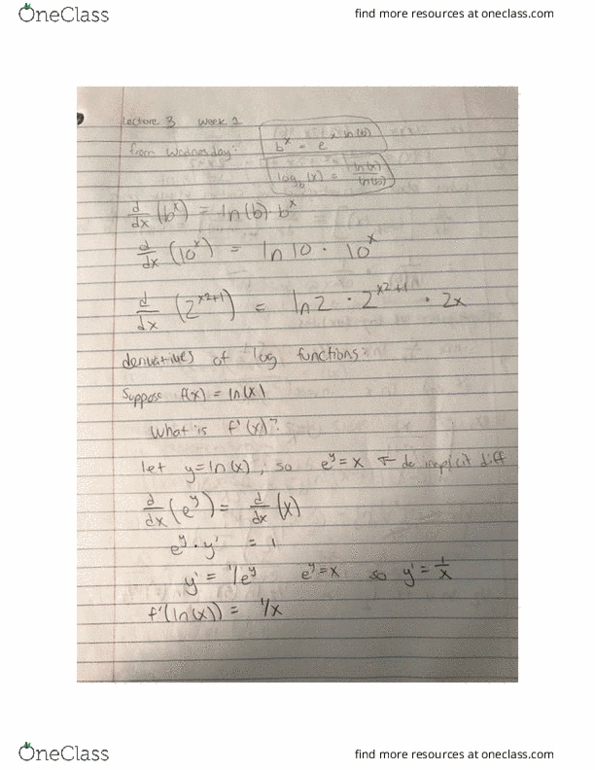 OneClass find more resources at oneclass.com
Lecture 3 Week 2
from Wednesday: b^x = e^(x ln(b))
log_b(x) = ln(x)/ln(b)
d/dx (b^x) = ln(b) · b^x
d/dx (10^x) = ln 10 · 10^x
d/dx (2^(x2+1)) = ln 2 · 2^(x2+1) · 2x
derivatives of log functions:
Suppose f(x) = ln(x)
What is f'(x)?
let y = ln(x), so e^y = x ← do implicit diff
d/dx (e^y) = d/dx (x)
e^y · y' = 1
y' = 1/e^y e^y = x so y' = 1/x
f'(ln(x)) = 1/x
OneClass find more resources at oneclass.com